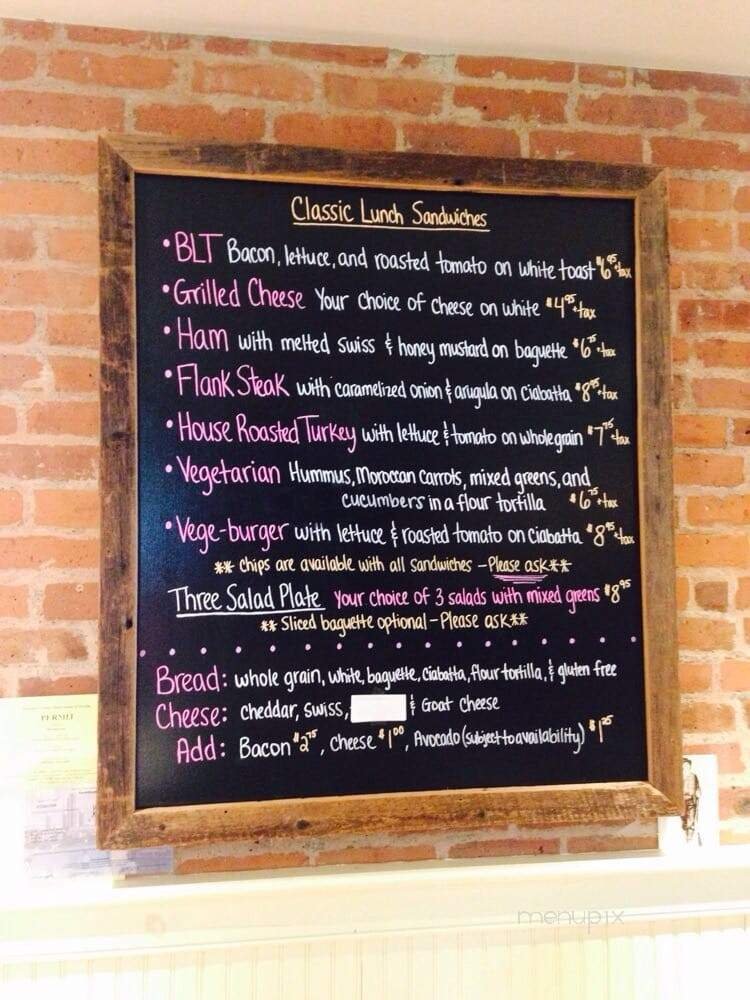 Classic Lunch Sandwiches
• BLT Bacon, lettuce, and roasted tomato on white toast $6.95 +tax
• Grilled Cheese Your choice of cheese on white $4.95 +tax
• Ham with melted swiss & honey mustard on baguette $6.75 +tax
• Flank Steak with caramelized onion & arugula on Ciabatta $8.95 +tax
• House Roasted Turkey with lettuce & tomato on whole grain $7.75 +tax
• Vegetarian Hummus, Moroccan carrots, mixed greens, and
cucumbers in a flour tortilla $6.75 +tax
• Vege-burger with lettuce & roasted tomato on ciabatta $8.95 +tax
** Chips are available with all sandwiches - Please ask**
Three Salad Plate Your choice of 3 salads with mixed greens $8.95
** Sliced baguette optional - Please ask**
Bread: whole grain, white, baguette, ciabatta, flour tortilla, & gluten free
Cheese: cheddar, swiss, & Goat Cheese
Add: Bacon $2.75, Cheese $1.00, Avocado (subject to availability) $1.25
PERMIT
menupix